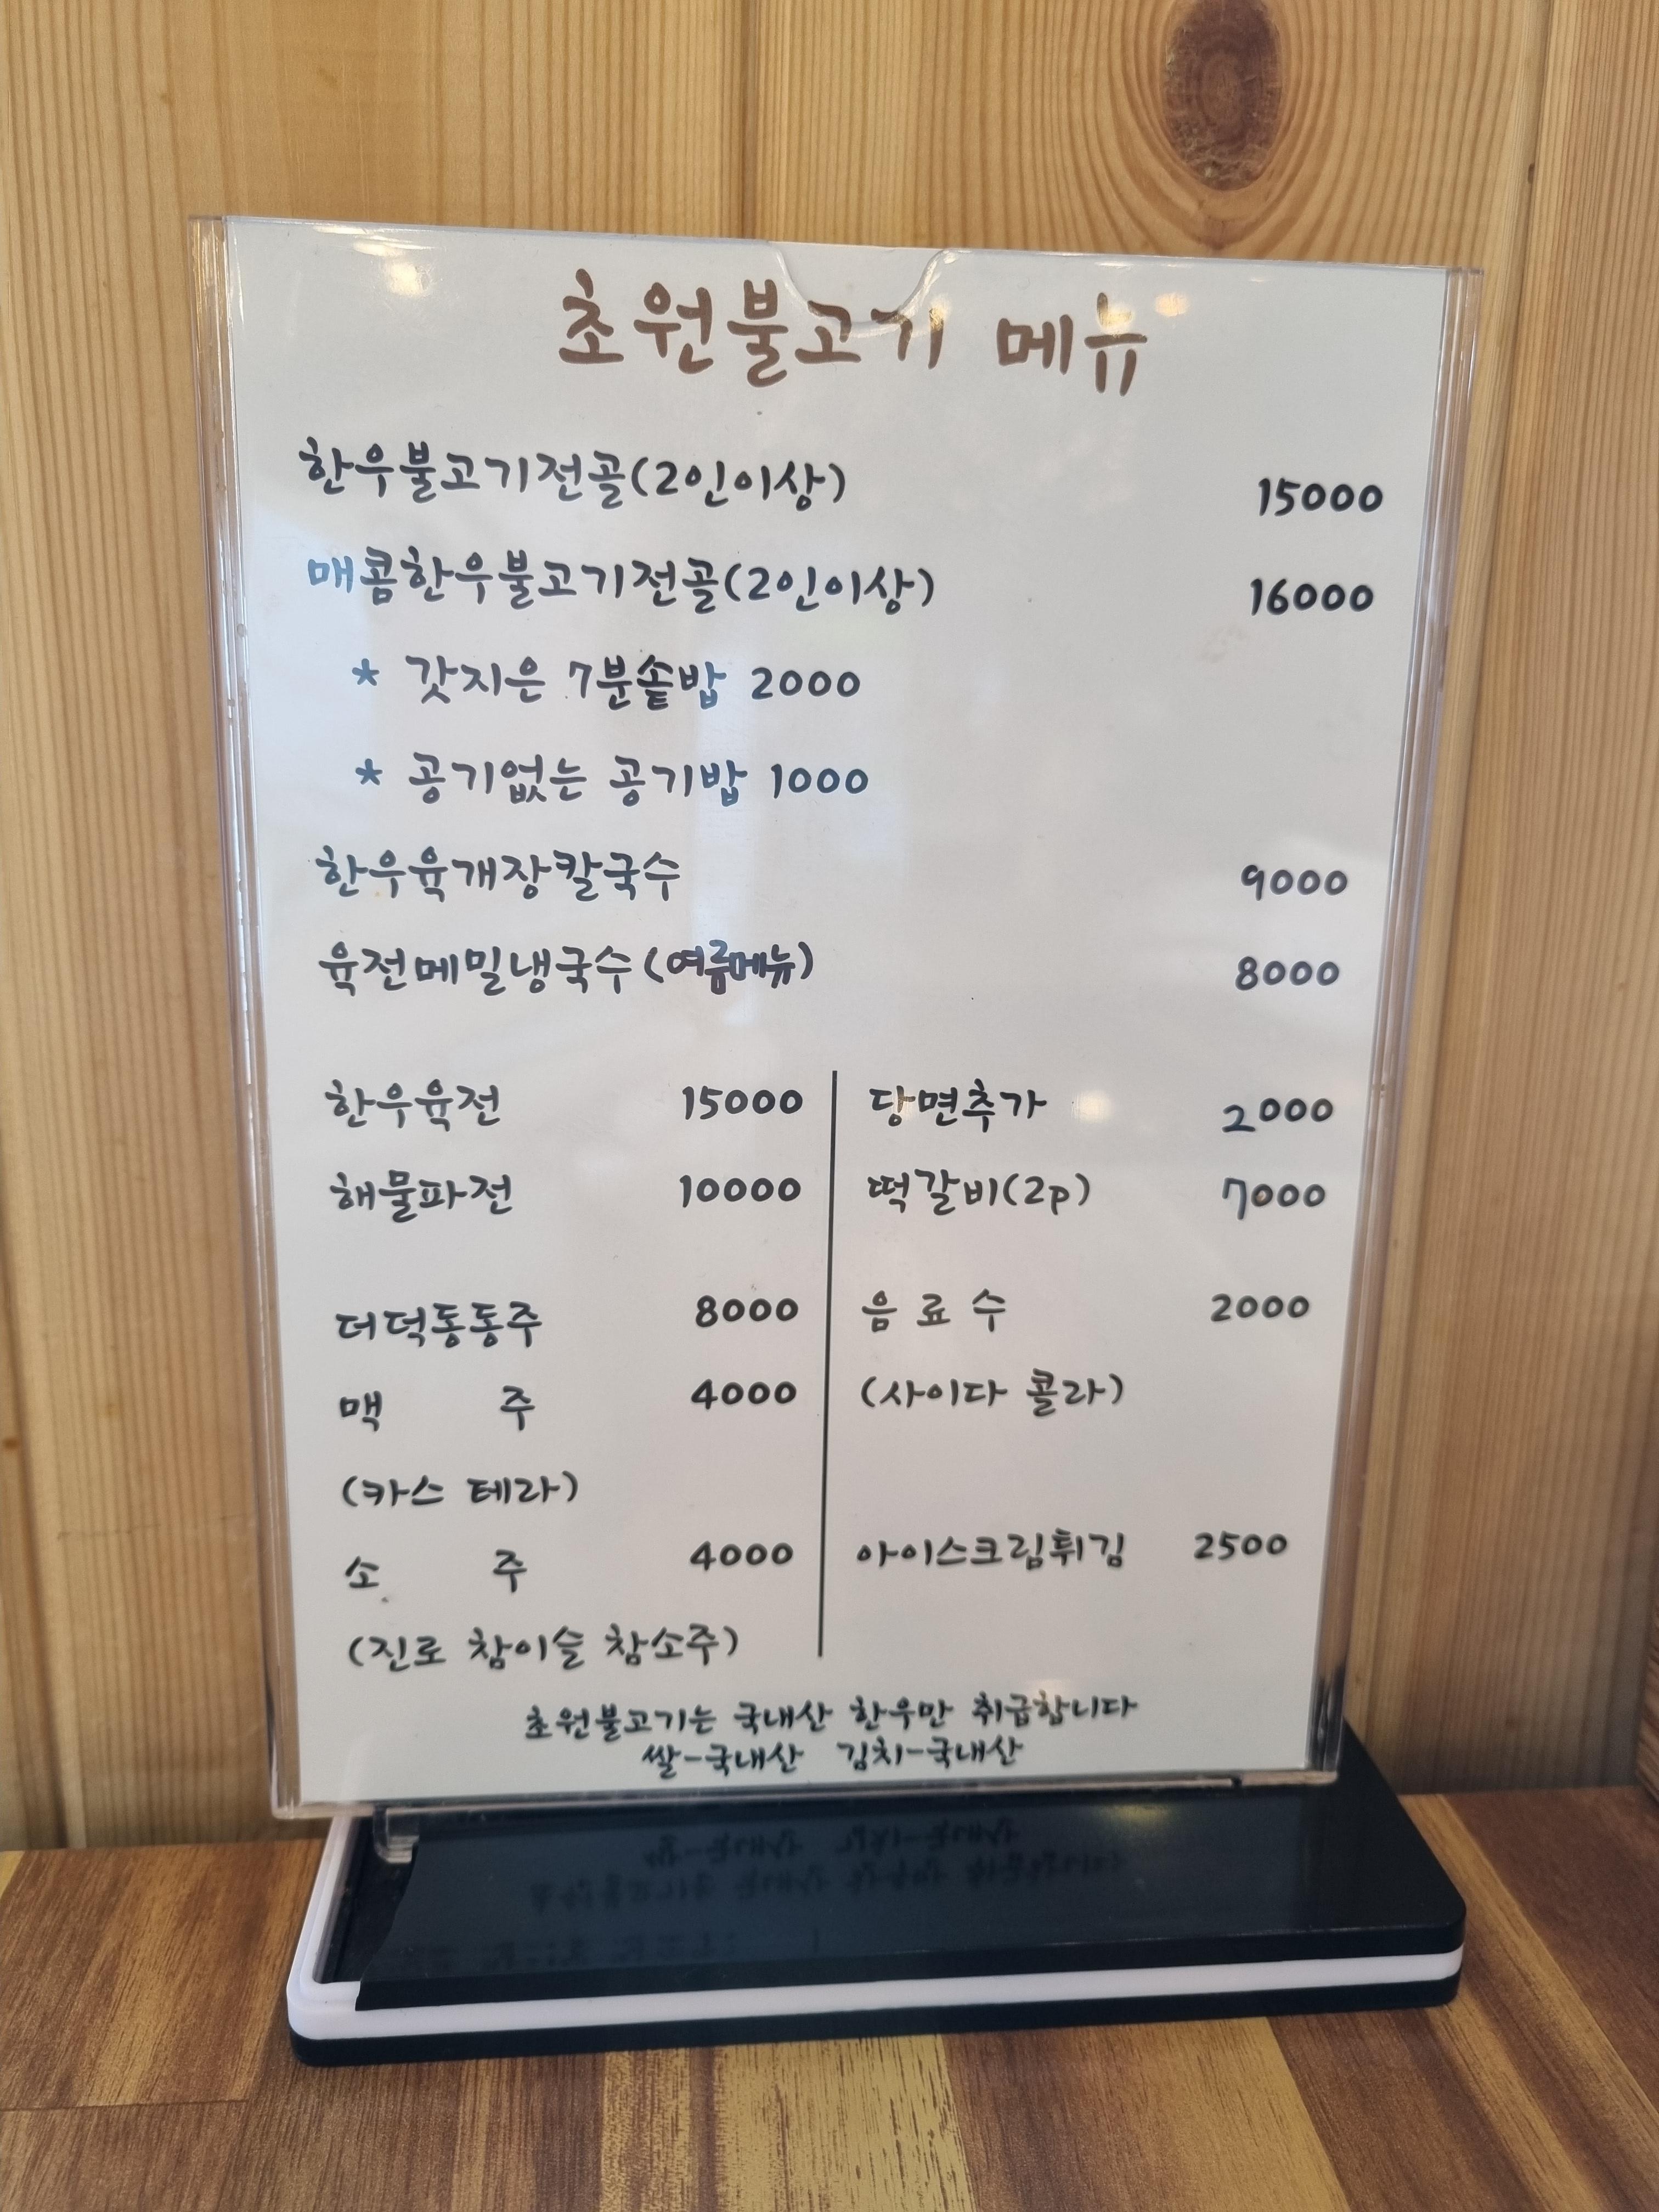 초원불고기 메뉴
한우불고기전골(2인이상) 15000
매콤한우불고기전골(2인이상) 16000
* 갓지은 7분솥밥 2000
* 공기없는 공기밥 1000
한우육개장칼국수 9000
육전메밀냉국수(여름메뉴) 8000
한우육전 15000
해물파전 10000
더덕동동주 8000
맥 주 4000
(카스 테라)
소 주 4000
(진로 참이슬 참소주)
당면추가 2000
떡갈비(2p) 7000
음 료 수 2000
(사이다 콜라)
아이스크림튀김 2500
초원불고기는 국내산 한우만 취급합니다
쌀-국내산 김치-국내산